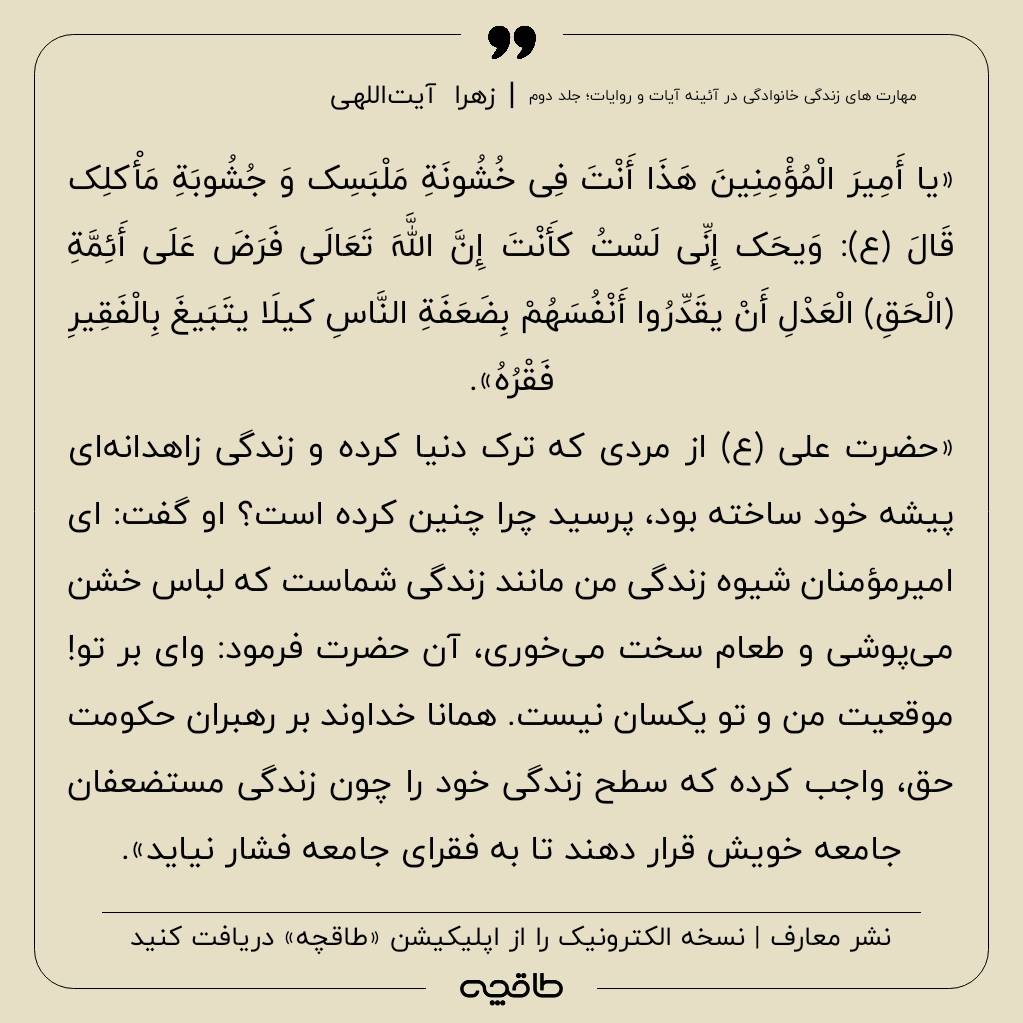 مهارت های زندگی خانوادگی در آئینه آیات و روایات؛ جلد دوم | زهرا آیت‌اللهی
«یا أَمِیرَ الْمُؤْمِنِینَ هَذَا أَنْتَ فِی خُشُونَةِ مَلْبَسِک وَ جُشُوبَةِ مَأْکلِک
قَالَ (ع): وَیحَک إِنِّی لَسْتُ کأَنْتَ إِنَّ اللَّهَ تَعَالَی فَرَضَ عَلَی أَئِمَّةِ
(الْحَقِ) الْعَدْلِ أَنْ یقَدِّرُوا أَنْفُسَهُمْ بِضَعَفَةِ النَّاسِ کیلَا یتَبَیغَ بِالْفَقِیرِ
فَقْرُهُ».
«حضرت علی (ع) از مردی که ترک دنیا کرده و زندگی زاهدانه‌ای
پیشه خود ساخته بود، پرسید چرا چنین کرده است؟ او گفت: ای
امیرمؤمنان شیوه زندگی من مانند زندگی شماست که لباس خشن
می‌پوشی و طعام سخت می‌خوری، آن حضرت فرمود: وای بر تو!
موقعیت من و تو یکسان نیست. همانا خداوند بر رهبران حکومت
حق، واجب کرده که سطح زندگی خود را چون زندگی مستضعفان
جامعه خویش قرار دهند تا به فقرای جامعه فشار نیاید».
نشر معارف | نسخه الکترونیک را از اپلیکیشن «طاقچه» دریافت کنید
طاقچه